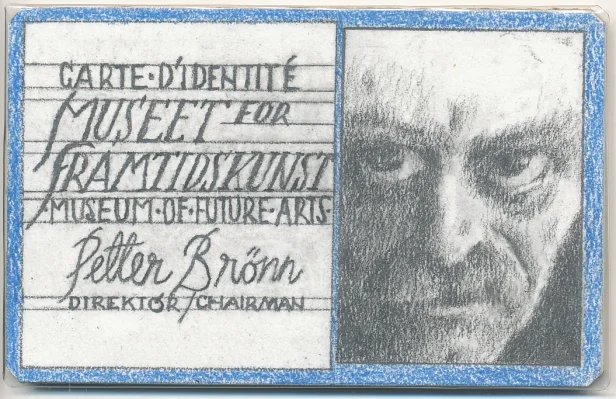 CARTE·D'IDENTITÉ
MUSEET FOR
FRAMTIDSKUNST
MUSEUM·OF·FUTURE·ARTS·
Petter Brönn
DIREKTÓR/CHAIRMAN